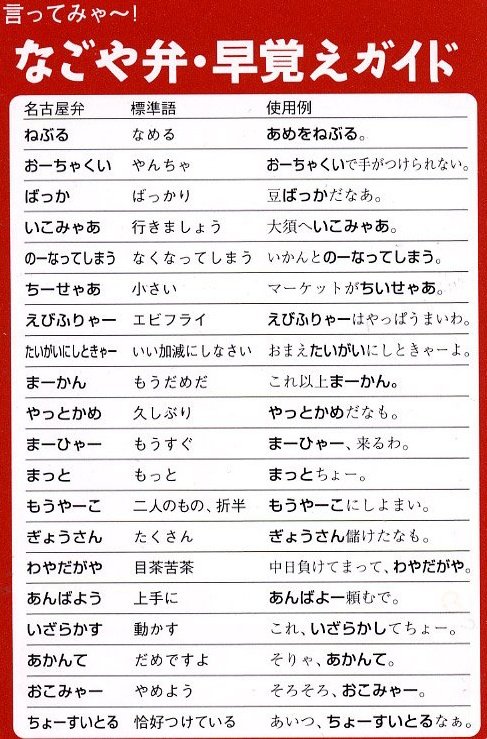 言ってみゃ～!
なごや弁・早覚えガイド
名古屋弁 標準語 使用例
ねぶる なめる あめをねぶる。
おーちゃくい やんちゃ おーちゃくいで手がつけられない。
ばっか ばっかり 豆ばっかだなあ。
いこみゃあ 行きましょう 大須へいこみゃあ。
のーなってしまう なくなってしまう いかんとのーなってしまう。
ちーせゃあ 小さい マーケットがちいせゃあ。
えびふりゃー エビフライ えびふりゃーはやっぱうまいわ。
たいがいにしときゃー いい加減にしなさい おまえたいがいにしときゃーよ。
まーかん もうだめだ これ以上まーかん。
やっとかめ 久しぶり やっとかめだなも。
まーひゃー もうすぐ まーひゃー、来るわ。
まっと もっと まっとちょー。
もうやーこ 二人のもの、折半 もうやーこにしよまい。
ぎょうさん たくさん ぎょうさん儲けたなも。
わやだがや 目茶苦茶 中日負けてまって、わやだがや。
あんばよう 上手に あんばよー頼むで。
いざらかす 動かす これ、いざらかしてちょー。
あかんて だめですよ そりゃ、あかんて。
おこみゃー やめよう そろそろ、おこみゃー。
ちょーすいとる 恰好つけている あいつ、ちょーすいとるなぁ。